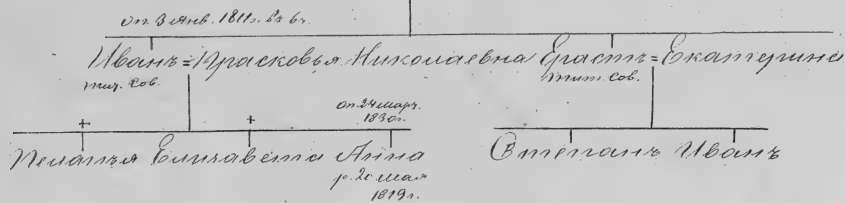 оп. 3 Янв. 1811 г. въ
Иванъ = Прасковья Николаевна Ерастъ = Екатерина
тит. Сов. тит. Сов.
+ + оп. 24 март. 1830 г.
Пелагѣя Елизавета Анна Степанъ Иванъ
р. 20 мая
1819 г.